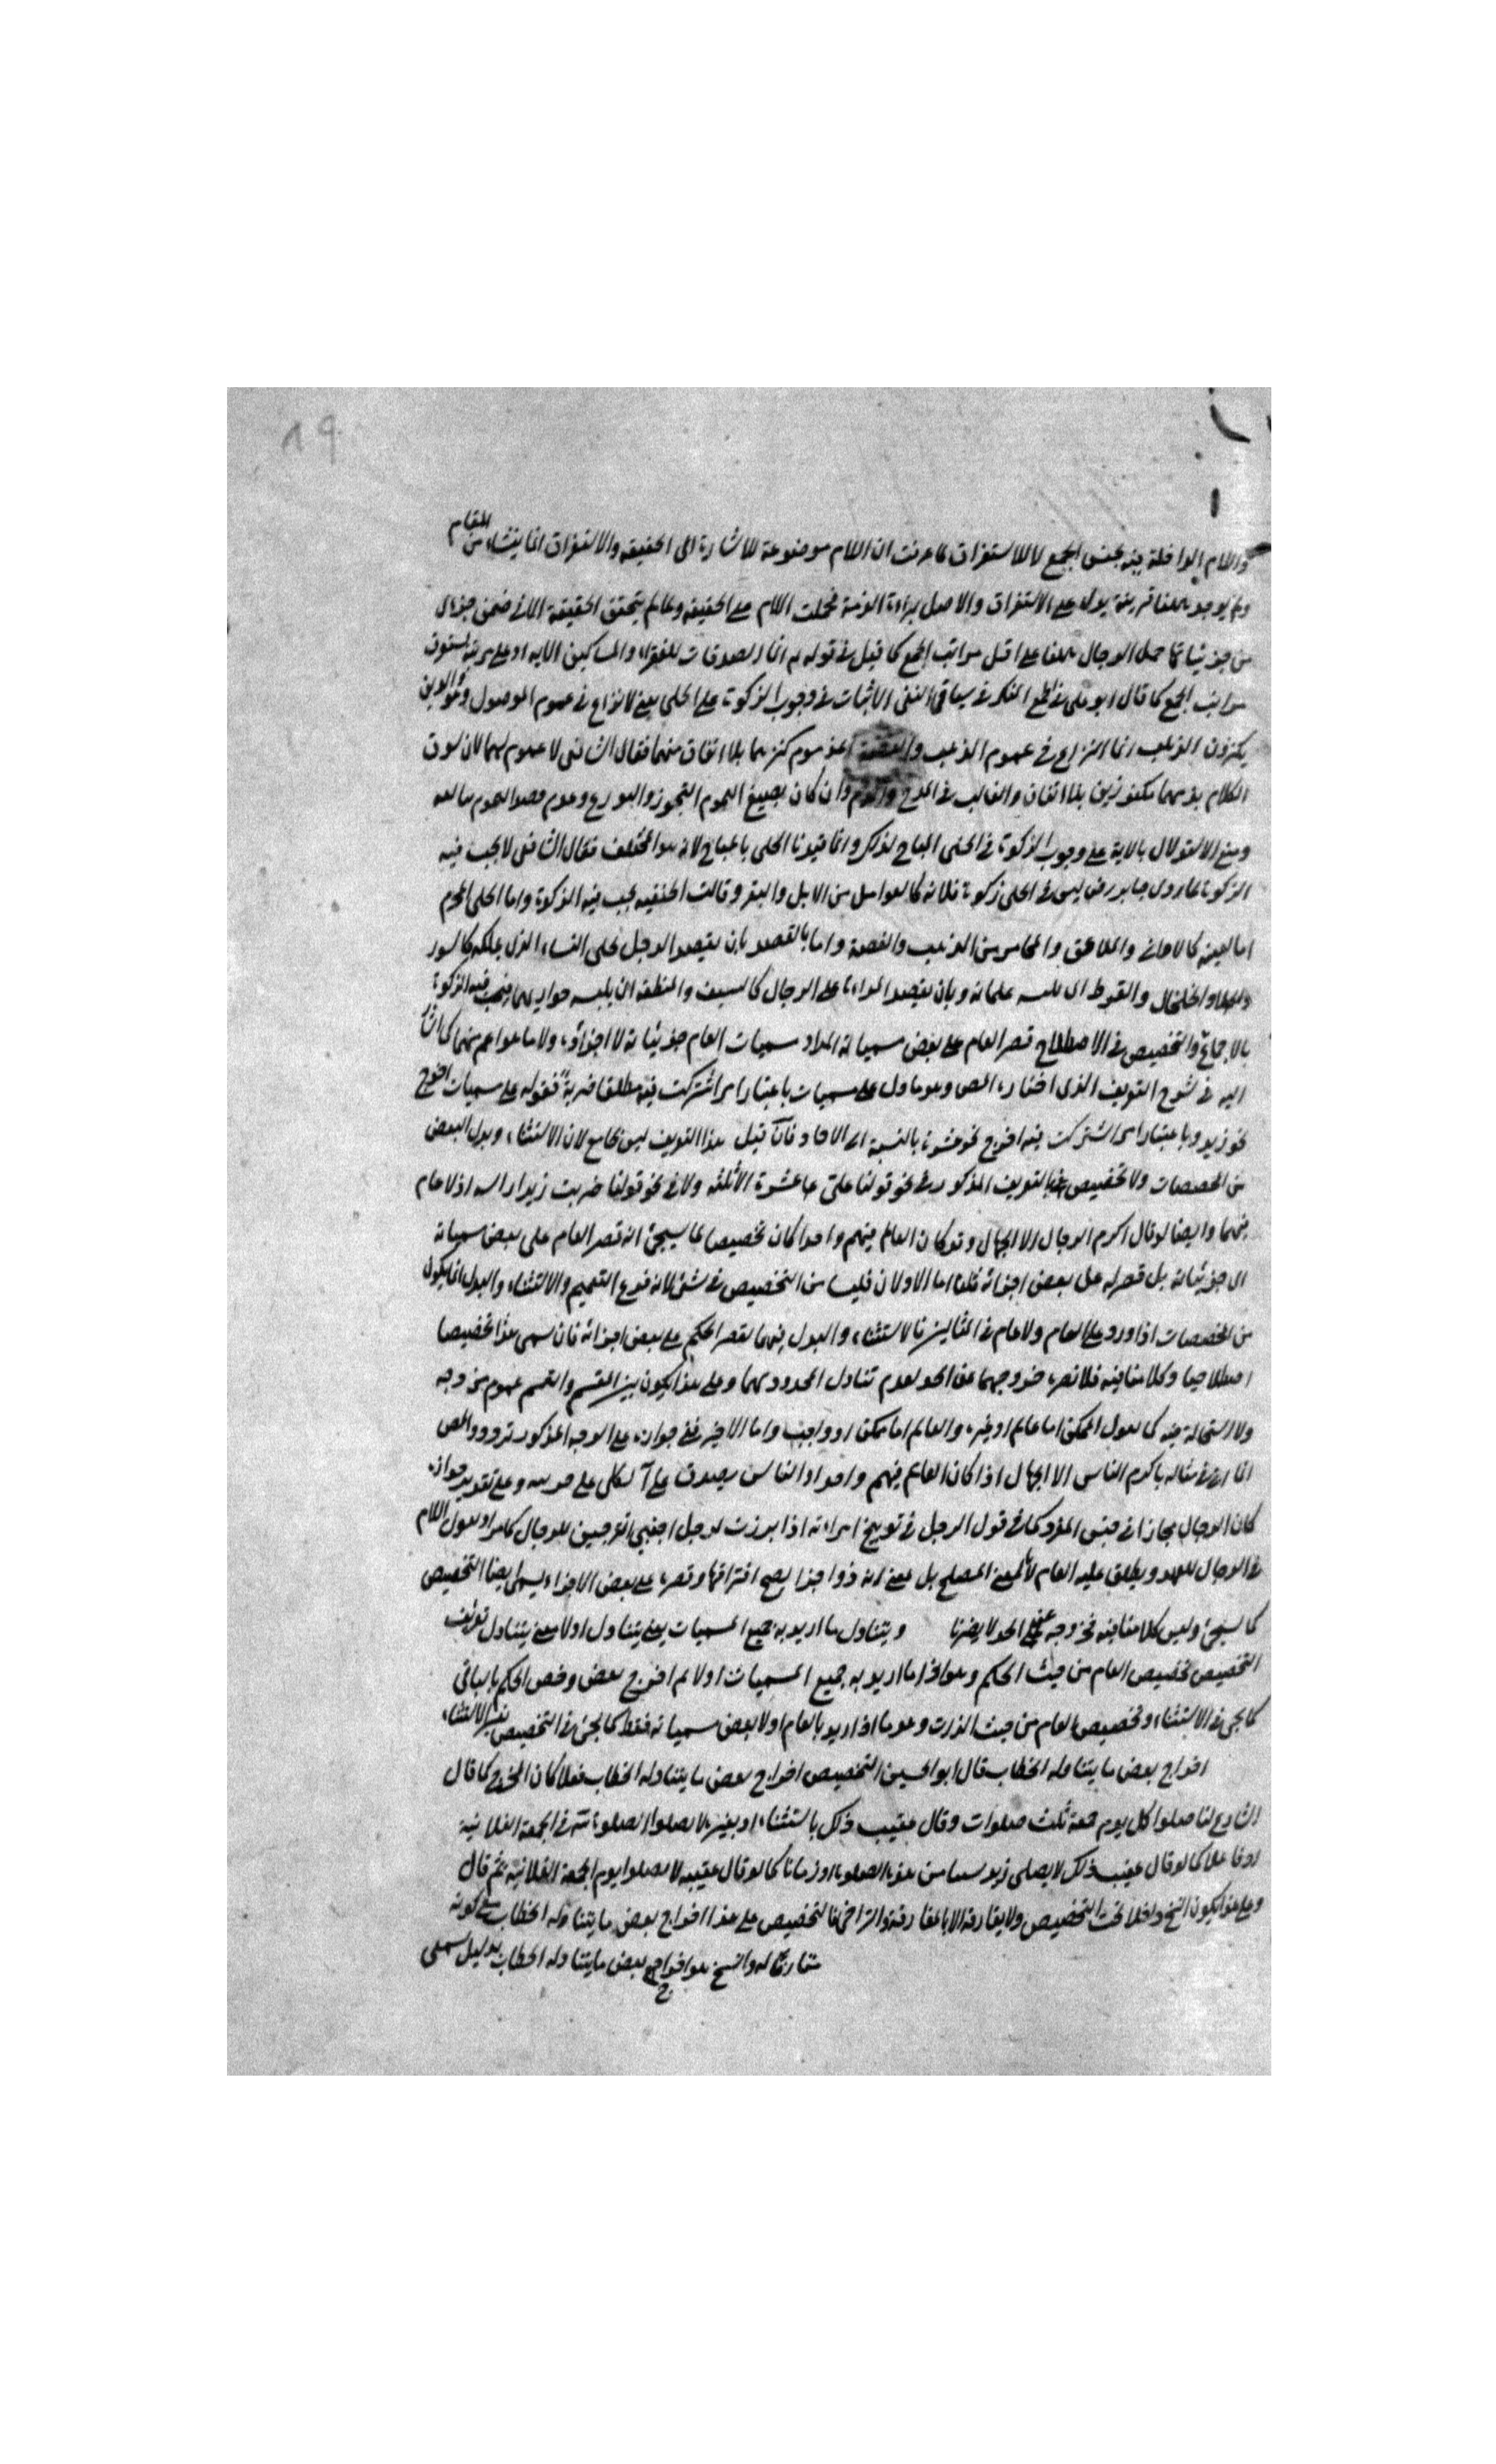 ٨٩
واللام الداخلة فيه بجنس الجمع لا للاستغراق لما عرفت ان اللام موضوعة للاشارة الى الحقيقة والاستغراق انما ينشاء من المقام
ولم يوجد ههنا قرينة يدل على الاستغراق والاصل براءة الذمة فحملت اللام على الحقيقة ولما لم يتحقق الحقيقة الا في ضمن جزئى
من جزئياتها حمل الرجال ههنا على اقل مراتب الجمع كما قيل في قوله انما الصدقات للفقراء والمساكين الاية او على مرتبة يستغرق
مراتب الجمع كما قال ابو على في الجمع المنكر في سياق النفى الاثبات في وجوب الزكوة على الحلى يعنى لا نزاع في عموم الموصول وهو الذين
يكنزون الذهب انما النزاع في عموم الذهب والفضة اعنى عموم كنزهما بلا انفاق منهما فقال الشافعى لا عموم لهما لان سوق
الكلام بذمهما مكنوزين بلا انفاق والغالب في المدح والذم وان كان بصيغ العموم التجوز والتوسع وعدم قصد العموم مبالغة
ومنع الاستدلال بالاية على وجوب الزكوة في الحلى المباح لذلك وانما قيدنا الحلى بالمباح لانه هو المختلف فقال الشافعى لا يجب فيه
الزكوة لما روى جابر رض ليس في الحلى زكوة فلانه كالعوامل من الابل والبقر وقالت الحنفية يجب فيه الزكوة واما الحلى المحرم
اما لعينه كالاوانى والملاعق والمجامر من الذهب والفضة واما بالقصد بان يقصد الرجل بحلى النساء الذى يملكه كالسور
والخلخال والقرط ان يلبسه غلمانه وبان يقصد المراءة على الرجال كالسيف والمنطقة ان يلبسه جواريها فيجب فيه الزكوة
بالاجماع والتخصيص في الاصطلاح قصر العام على بعض مسمياته المراد مسميات العام جزئياته لا اجزاؤه ولا ما هو اعم منهما كما اشار
اليه في شرح التعريف الذى اختاره المص وهو ما دل على مسميات باعتبار امر اشتركت فيه مطلقا ضربة فقوله على مسميات اخرج
نحو زيد وباعتبار امر اشتركت فيه اخرج نحو عشرة بالنسبة الى الاحاد فان قيل هذا التعريف ليس بجامع لان الاستثناء وبدل البعض
من المخصصات ولا تخصيص بالتعريف المذكور في نحو قولنا على عشرة الا ثلثة ولا في نحو قولنا ضربت زيدا راسه اذ لا عام
فيهما وايضا لو قال اكرم الرجال الا الجهال وتو كان العالم فيهم واحدا كان تخصيصا لما سيجئ انه قصر العام على بعض مسمياته
الى جزئياته بل قصر له على بعض اجزائه قلنا اما الاولان فليسا من التخصيص في شئ لانه فرع التعميم والاستثناء والبدل انما يكون
من المخصصات اذا ورد على العام ولا عام في المثالين فالاستثناء والبدل فيهما لقصر الحكم على بعض اجزائه فان سمى هذا تخصيصا
اصطلاحيا وكلامنا فيه فلا نضره خروجهما عن الحد لعدم تناول المحدود لهما وعلى هذا يكون بين القسم والقسم عموم من وجه
ولا استحالة فيه كما يقول الممكن اما عالم او غيره والعالم اما ممكن او واجب واما الاخير ففى جوازه على الوجه المذكور تردد والمص
انما اتى في مثاله باكرم الناس الا الجهال اذا كان العالم فيهم واحدا والناس يصدق على الكل على وعلى تقدير جوازه
كان الرجال مجازا في جنس المفرد كما في قول الرجل في توبيخ امراءته اذا برزت لرجل اجنبى اتبرجين للرجال كما مر او يقول اللام
في الرجال للعهد ويطلق عليه العام لا بالمعنى المصطلح بل بمعنى انه ذو اجزا يصح افتراقها وقصره على بعض الاجزاء يسمى ايضا التخصيص
كما سيجئ وليس كلامنا فيه فخروجه عن الحد لا يضرنا ويتناول ما اريد به جميع المسميات يعنى يتناول اولا معنى يتناول تعريف
التخصيص تخصيص العام من حيث الحكم وهو اذا ما اريد به جميع المسميات اولا ثم اخرج بعض وخص الحكم بالباقى
كما يجئ في الاستثناء وتخصيص العام من حيث الذات وهو ما اذا اريد بالعام اولا بعض مسمياته فقط كما يجئ في التخصيص بغير الاستثناء
اخراج بعض ما يتناوله الخطاب قال ابو الحسين التخصيص اخراج بعض ما يتناوله الخطاب فعلا كان المخرج كما قال
الشارع لنا صلوا كل يوم جمعة ثلث صلوات وقال عقيب ذلك باستثناء او بغيره لا تصلوا الصلوة في الجمعة الفلانية
او فاعلا كما لو قال عقيب ذلك لا يصلى زيد شيئا من هذه الصلوة او زمانا كما لو قال عقيبه لا تصلوا يوم الجمعة الفلانية ثم قال
وعلى هذا يكون النسخ داخلا تحت التخصيص ولا يفارقه الا بالمقارنة والتراخى فالتخصيص على هذا اخراج بعض ما يتناوله الخطاب مع كونه
مقارنا له والنسخ هو اخراج بعض ما يتناوله الخطاب بدليل سمعى